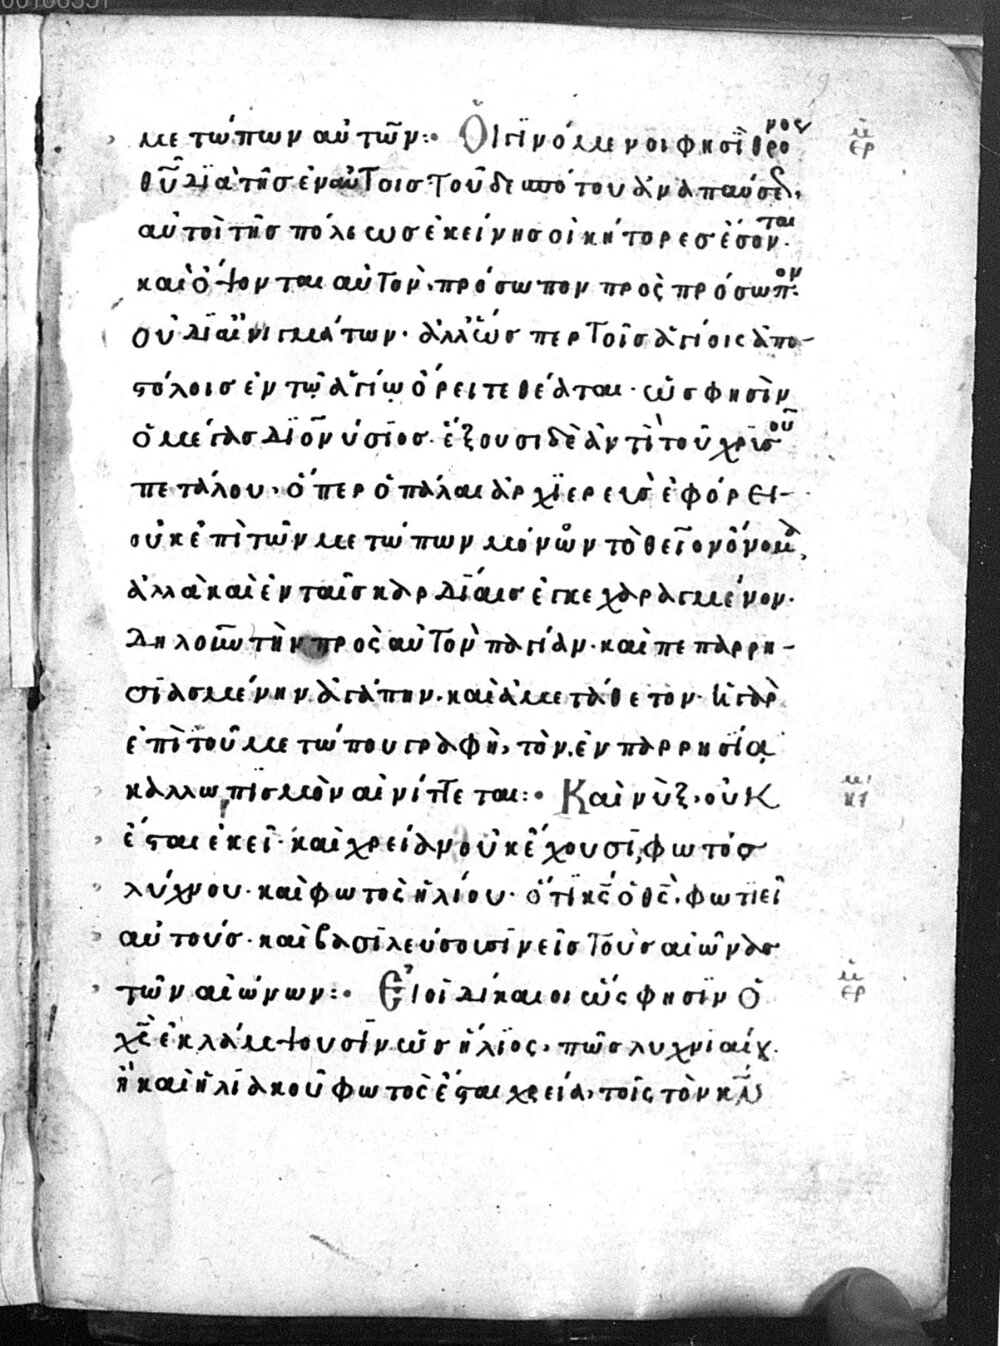 00106351
μετώπων αὐτῶν:· Οἱ γινόμενοι φησὶ θρόνος
θῦ διὰ τῆς ἐν αὐτοῖς τοῦδε ἀπὸ τοῦ ἀναπαύσε,
αὐτοὶ τῆς πόλεως ἐκείνης οἰκήτορες ἔσονται·
καὶ ὄψονται αὐτὸν, πρόσωπον πρὸς πρόσωπον·
οὐ δι αἰνιγμάτων· ἀλλ ὥσπερ τοῖς ἁγίοις ἀπο-
στόλοις ἐν τῷ ἁγίῳ ὄρει τεθέαται· ὥς φησὶν
ὁ μέγας Διονύσιος· ἕξουσι δὲ ἀντὶ τοῦ χρυσοῦ
πετάλου, ὅπερ ὁ πάλαι ἀρχιερεὺς ἐφόρει-
οὐκ ἐπὶ τῶν μετώπων μόνων τὸ θεῖον ὄνομα,
ἀλλὰ καὶ ἐν ταῖς καρδίαις ἐγκεχαραγμένον·
δηλοῦν τὴν πρὸς αὐτὸν παγίαν· καὶ πεπαρρη-
σιασμένην ἀγάπην· καὶ ἀμετάθετον· ἡ γὰρ
ἐπὶ τοῦ μετώπου γραφὴ, τὸν ἐν παρρησίᾳ
καλλωπισμὸν αἰνίττεται:· Καὶ νὺξ, οὐκ
ἔσται ἐκεῖ· καὶ χρείαν οὐκ ἔχουσι, φωτὸς
λύχνου· καὶ φωτὸς ἡλίου· ὅτι κς ὁ θς, φωτιεῖ
αὐτούς· καὶ βασιλεύσουσιν εἰς τοὺς αἰῶνας
τῶν αἰώνων:· Εἰ οἱ δίκαιοι ὥς φησιν ὁ
χς ἐκλάμψουσιν ὡς ἥλιος, πῶς λυχνιαίου·
ἢ καὶ ἡλιακοῦ φωτὸς ἔσται χρεία, τοῖς τὸν
κει
ερ